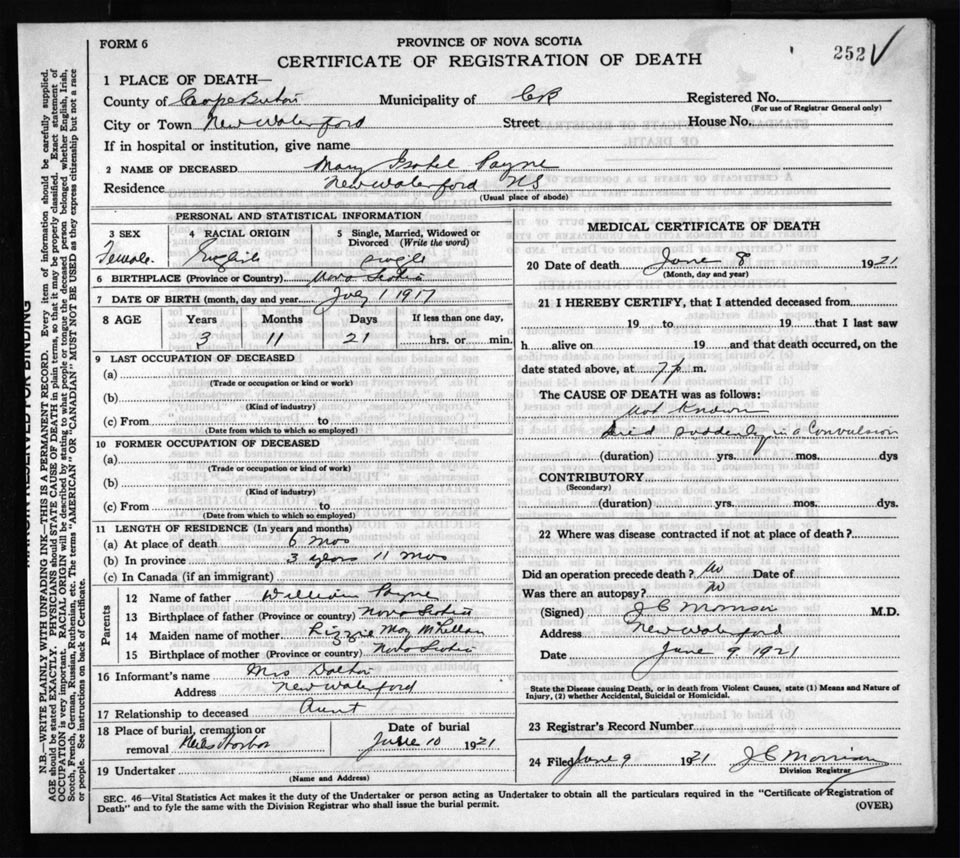 FORM 6
PROVINCE OF NOVA SCOTIA
CERTIFICATE OF REGISTRATION OF DEATH
252
1 PLACE OF DEATH—
County of Cape Breton Municipality of CB Registered No.
(For use of Registrar General only)
City or Town New Waterford Street House No.
If in hospital or institution, give name
2 NAME OF DECEASED Mary Isabel Payne
Residence New Waterford NS
(Usual place of abode)
PERSONAL AND STATISTICAL INFORMATION
3 SEX 4 RACIAL ORIGIN 5 Single, Married, Widowed or Divorced (Write the word)
Female English single
6 BIRTHPLACE (Province or Country) Nova Scotia
7 DATE OF BIRTH (month, day and year) July 1 1917
8 AGE Years Months Days If less than one day,
3 11 21 hrs. or min.
9 LAST OCCUPATION OF DECEASED
(a)
(Trade or occupation or kind of work)
(b)
(Kind of industry)
(c) From to
(Date from which to which so employed)
10 FORMER OCCUPATION OF DECEASED
(a)
(Trade or occupation or kind of work)
(b)
(Kind of industry)
(c) From to
(Date from which to which so employed)
11 LENGTH OF RESIDENCE (In years and months)
(a) At place of death 6 mos
(b) In province 3 years 11 mos
(c) In Canada (if an immigrant)
Parents
12 Name of father William Payne
13 Birthplace of father (Province or country) Nova Scotia
14 Maiden name of mother Lizzie May McLellan
15 Birthplace of mother (Province or country) Nova Scotia
16 Informant's name Mrs
Address New Waterford
17 Relationship to deceased Aunt
18 Place of burial, cremation or removal Neils Harbor
Date of burial
June 10 1921
19 Undertaker
(Name and Address)
MEDICAL CERTIFICATE OF DEATH
20 Date of death June 8 1921
(Month, day and year)
21 I HEREBY CERTIFY, that I attended deceased from
19 to 19 that I last saw
h alive on 19 and that death occurred, on the
date stated above, at 7 p. m.
The CAUSE OF DEATH was as follows:
Not Known
Died suddenly in a Convulsion
(duration) yrs. mos. dys
CONTRIBUTORY
(Secondary)
(duration) yrs. mos. dys.
22 Where was disease contracted if not at place of death?
Did an operation precede death? No Date of
Was there an autopsy? No
(Signed) J C Morrison M.D.
Address New Waterford
Date June 9 1921
State the Disease causing Death, or in death from Violent Causes, state (1) Means and Nature of
Injury, (2) whether Accidental, Suicidal or Homicidal.
23 Registrar's Record Number
24 Filed June 9 1921 J C Morrison
Division Registrar
SEC. 46—Vital Statistics Act makes it the duty of the Undertaker or person acting as Undertaker to obtain all the particulars required in the "Certificate of Registration of
Death" and to fyle the same with the Division Registrar who shall issue the burial permit.
(OVER)
N.B.—WRITE PLAINLY WITH UNFADING INK—THIS IS A PERMANENT RECORD. Every item of information should be carefully supplied.
AGE should be stated EXACTLY. PHYSICIANS should STATE CAUSE OF DEATH in plain terms, so that it may be properly classified. Exact statement of
OCCUPATION is very important. RACIAL ORIGIN will be described by stating to what people or tongue the deceased person belonged whether English, Irish,
Scotch, French, German, Russian, Ruthenian, etc. The terms "AMERICAN" OR "CANADIAN" MUST NOT BE USED as they express citizenship but not a race
or people. See instructions on back of Certificate.